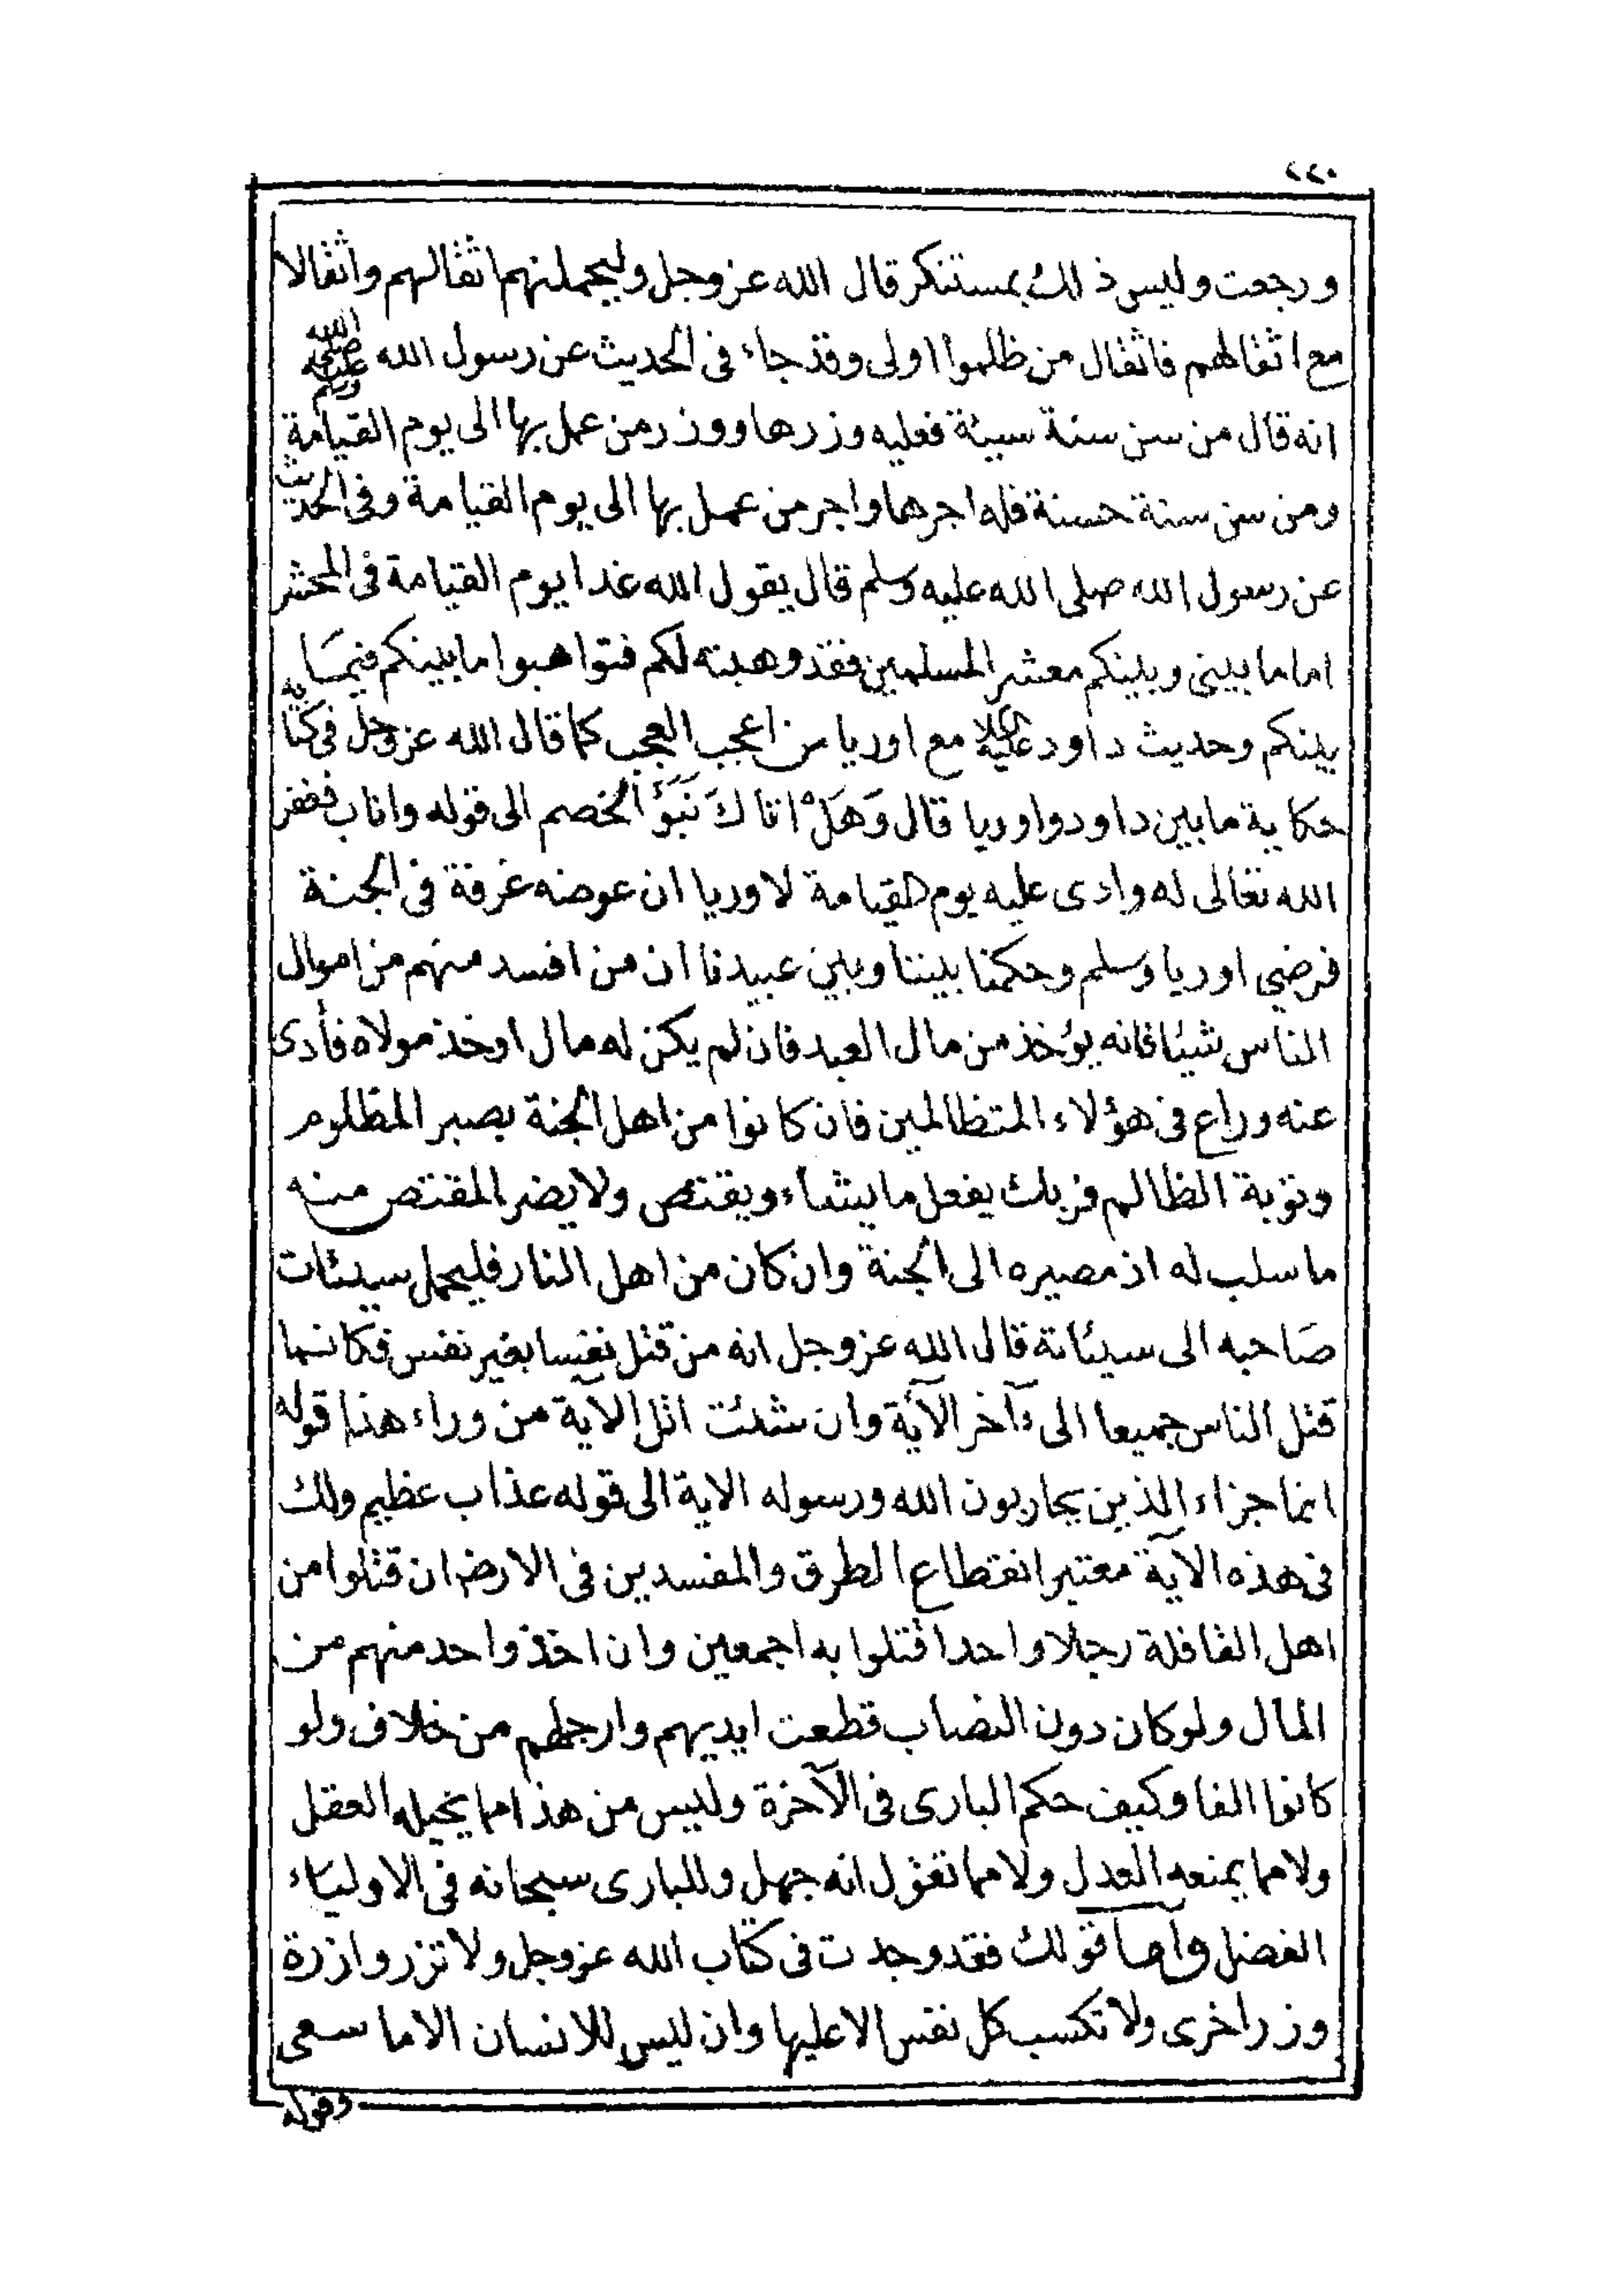 ٢٢٠
ورجعت وليس ذلك بمستنكر قال الله عز وجل وليحملنهم اثقالهم واثقالا
مع اثقالهم فاثقال من ظلموا اولى وقد جاء فى الحديث عن رسول الله صلى الله عليه وسلم
انه قال من سن سنة سيئة فعليه وزرها ووزر من عمل بها الى يوم القيامة
ومن سن سنة حسنة فله اجرها واجر من عمل بها الى يوم القيامة وفى الحديث
عن رسول الله صلى الله عليه وسلم قال يقول الله غدا يوم القيامة فى المحشر
اما ما بينى وبينكم معشر المسلمين فقد وهبته لكم فتواهبوا ما بينكم فيمَا
بينكم وحديث داود عليه السلام مع اوريا من اعجب العجب كما قال الله عز وجل فى كتابه
حكاية ما بين داود واوريا قال وَهَلْ اتاكَ نَبَؤُ الخصم الى قوله واناب فغفر
الله تعالى له وادى عليه يوم القيامة لاوريا ان عوضه غرفة فى الجنة
فرضي اوريا وسلم وحكمنا بيننا وبين عبيدنا ان من افسد منهم من اموال
الناس شيئا فانه يؤخذ من مال العبد فان لم يكن له مال اوخذ مولاه فأدى
عنه وراع فى هؤلاء المتظالمين فان كانوا من اهل الجنة بصبر المظلوم
وتوبة الظالم فربك يفعل ما يشاء ويقتص ولا يضر المقتص منه
ما سلب له اذ مصيره الى الجنة وان كان من اهل النار فليحمل سيئات
صَاحبه الى سيئاتة قال الله عز وجل انه من قتل نفسا بغير نفس فكانما
قتل الناس جميعا الى ءآخر الآية وان شئت اتل الآية من وراء هذا قوله
انما جزاء الذين يحاربون الله ورسوله الاية الى قوله عذاب عظيم ولك
فى هذه الآية معتبر انقطاع الطرق والمفسدين فى الارض ان قتلوا من
اهل القافلة رجلا واحدا قتلوا به اجمعين وان اخذ واحد منهم من
المال ولو كان دون النصاب قطعت ايديهم وارجلهم من خلاف ولو
كانوا الفا وكيف حكم البارى فى الآخرة وليس من هذا مما يحيله العقل
ولا مما يمنعه العدل ولا مما تقول انه جهل وللبارى سبحانه فى الاولياء
الفضل وامـا قولك فقد وجدت فى كتاب الله عز وجل ولا تزر وازرة
وزر اخرى ولا تكسب كل نفس الا عليها وان ليس للانسان الا ما سعى
وقوله